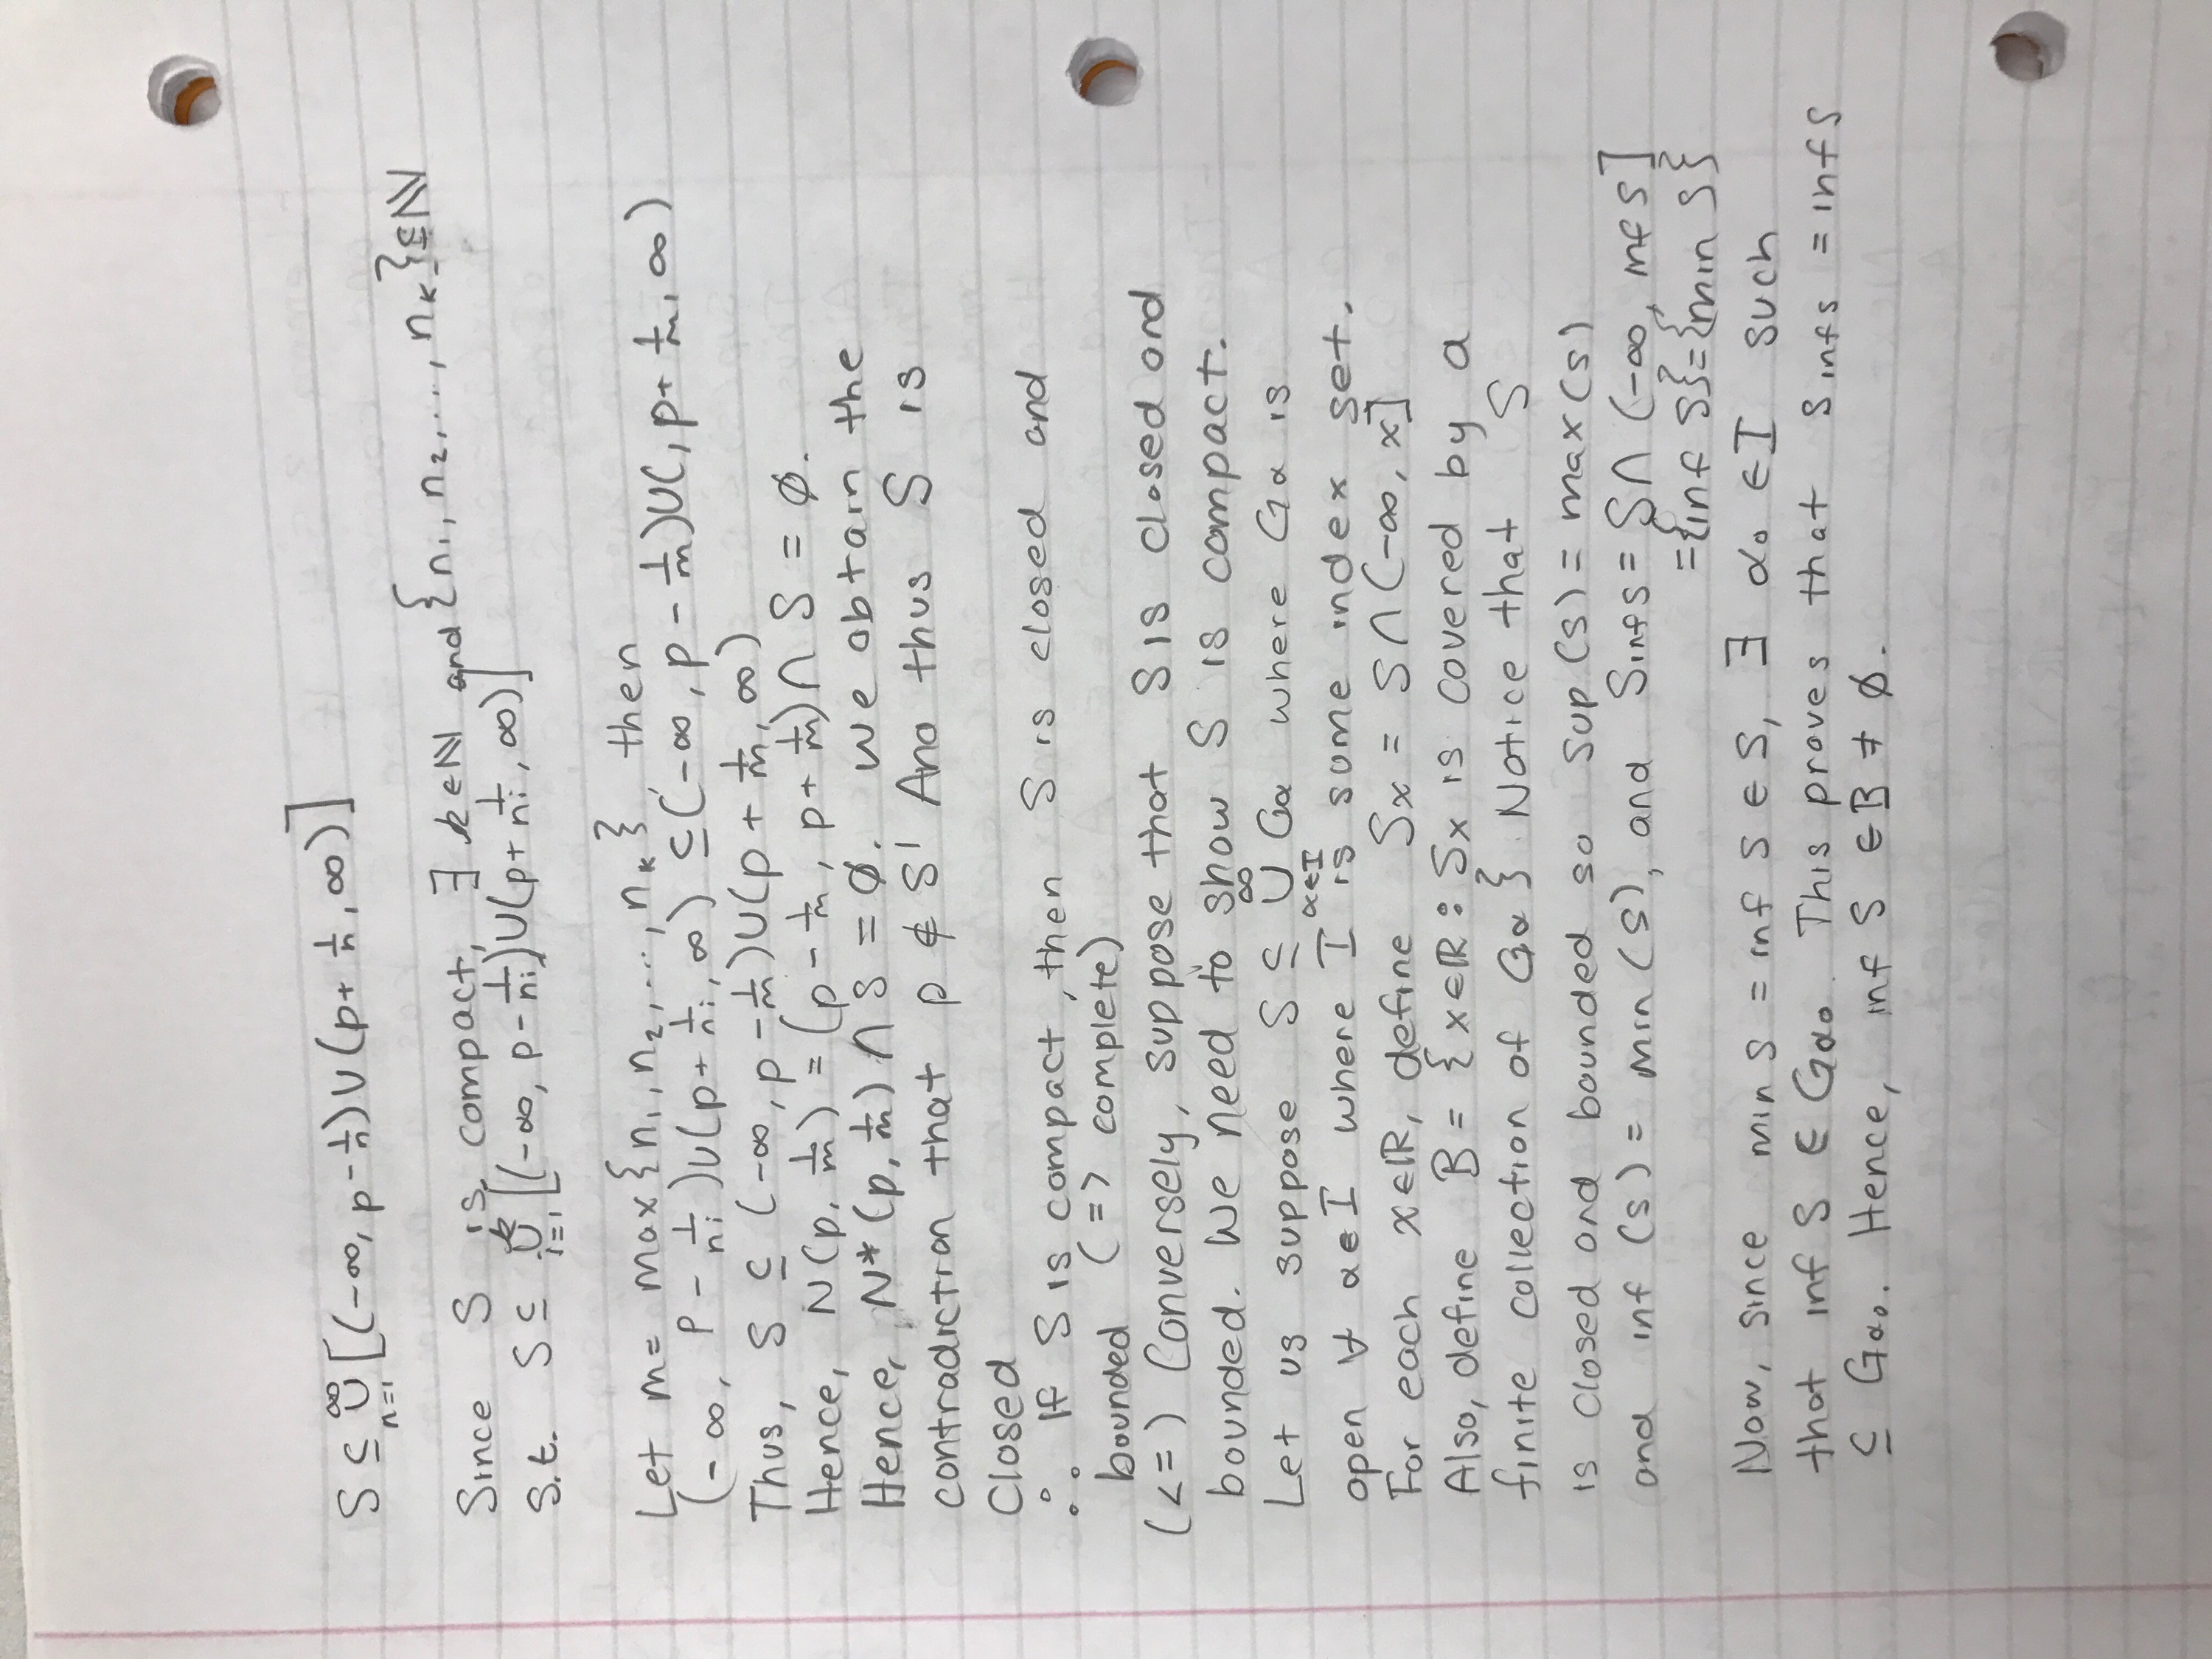 S ⊆ ∞⋃n=1 [(-∞, p - 1/n) ∪ (p + 1/n, ∞)]
Since S is compact, ∃ k ∈ ℕ and {n1, n2, ..., nk} ⊆ ℕ
S.t. S ⊆ k⋃i=1 [(-∞, p - 1/ni) ∪ (p + 1/ni, ∞)]
Let m = max {n1, n2, ..., nk}, then
(-∞, p - 1/ni) ∪ (p + 1/ni, ∞) ⊆ (-∞, p - 1/m) ∪ (, p + 1/m, ∞)
Thus, S ⊆ (-∞, p - 1/m) ∪ (p + 1/m, ∞)
Hence, N(p, 1/m) = (p - 1/m, p + 1/m) ∩ S = ∅.
Hence, N*(p, 1/m) ∩ S = ∅. We obtain the
contradiction that p ∉ S' And thus S is
Closed
∴ If S is compact, then S is closed and
bounded (=> complete)
(<=) Conversely, suppose that S is closed and
bounded. We need to show S is compact.
Let us suppose S ⊆ ∞⋃α∈I Gα where Gα is
open ∀ α ∈ I where I is some index set.
For each x ∈ ℝ, define Sx = S ∩ (-∞, x]
Also, define B = {x ∈ ℝ : Sx is covered by a
finite collection of Gα} Notice that S
is closed and bounded so sup (S) = max (S)
and inf (S) = min (S), and Sinfs = S ∩ (-∞, inf S]
= {inf S} = {min S}
Now, since min S = inf S ∈ S, ∃ α0 ∈ I such
that inf S ∈ Gα0. This proves that Sinfs = inf S
⊆ Gα0. Hence, inf S ∈ B ≠ ∅.